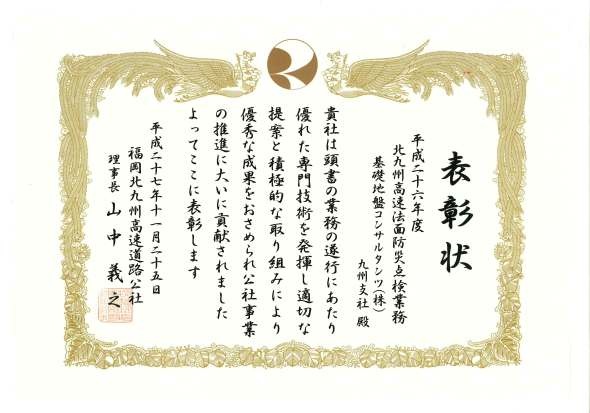 表彰状
平成二十六年度
北九州高速法面防災点検業務
基礎地盤コンサルタンツ(株)
九州支社 殿
貴社は頭書の業務の遂行にあたり
優れた専門技術を発揮し適切な
提案と積極的な取り組みにより
優秀な成果をおさめられ公社事業
の推進に大いに貢献されました
よってここに表彰します
平成二十七年十一月二十五日
福岡北九州高速道路公社
理事長 山中義之